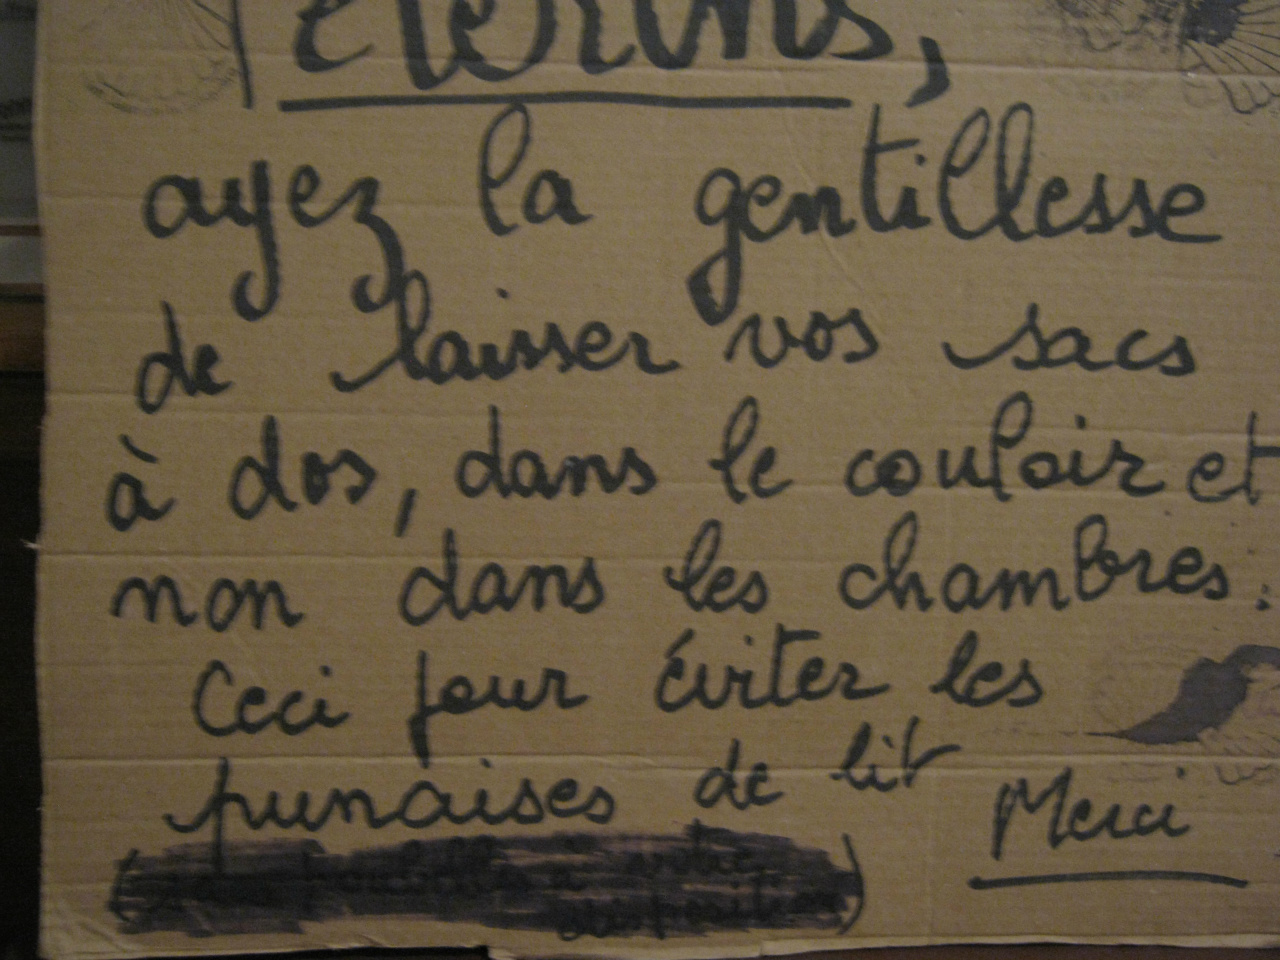 èlerins,
ayez la gentillesse
de laisser vos sacs
à dos, dans le couloir et
non dans les chambres.
Ceci pour éviter les
punaises de lit
Merci